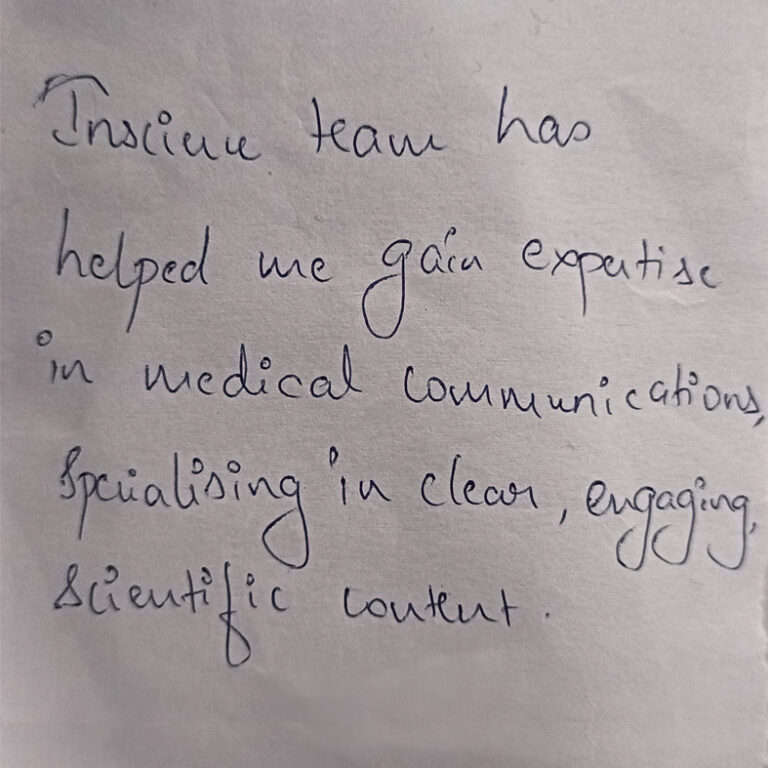 Inscience team has
helped me gain expertise
in medical communications,
specialising in clear, engaging,
scientific content.